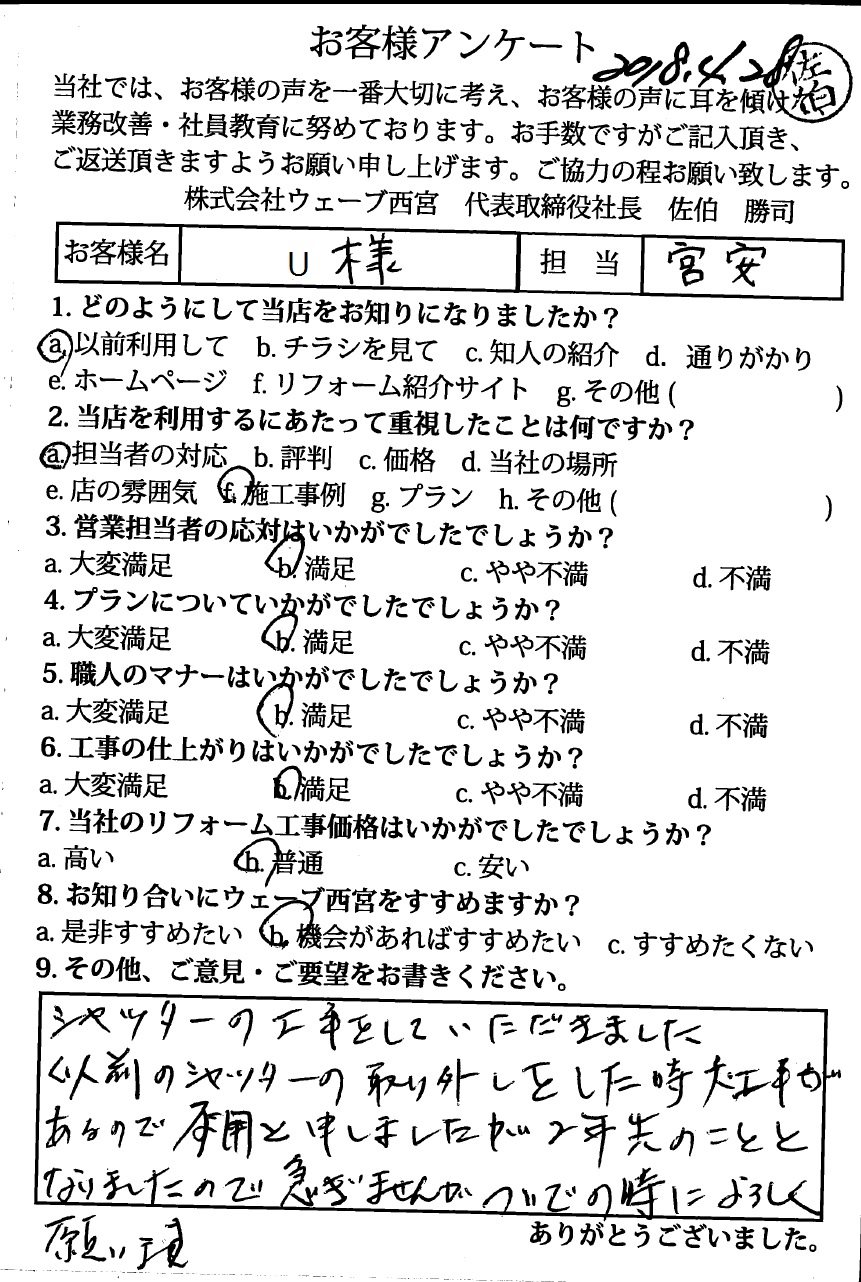 お客様アンケート 2018.4.28 佐伯
当社では、お客様の声を一番大切に考え、お客様の声に耳を傾けた
業務改善・社員教育に努めております。お手数ですがご記入頂き、
ご返送頂きますようお願い申し上げます。ご協力の程お願い致します。
株式会社ウェーブ西宮 代表取締役社長 佐伯 勝司
お客様名 U 様 担 当 宮安
1. どのようにして当店をお知りになりましたか？
a. 以前利用して b. チラシを見て c. 知人の紹介 d. 通りがかり
e. ホームページ f. リフォーム紹介サイト g. その他 ( )
2. 当店を利用するにあたって重視したことは何ですか？
a. 担当者の対応 b. 評判 c. 価格 d. 当社の場所
e. 店の雰囲気 f. 施工事例 g. プラン h. その他 ( )
3. 営業担当者の応対はいかがでしたでしょうか？
a. 大変満足 b. 満足 c. やや不満 d. 不満
4. プランについていかがでしたでしょうか？
a. 大変満足 b. 満足 c. やや不満 d. 不満
5. 職人のマナーはいかがでしたでしょうか？
a. 大変満足 b. 満足 c. やや不満 d. 不満
6. 工事の仕上がりはいかがでしたでしょうか？
a. 大変満足 b. 満足 c. やや不満 d. 不満
7. 当社のリフォーム工事価格はいかがでしたでしょうか？
a. 高い b. 普通 c. 安い
8. お知り合いにウェーブ西宮をすすめますか？
a. 是非すすめたい b. 機会があればすすめたい c. すすめたくない
9. その他、ご意見・ご要望をお書きください。
シャッターの工事をしていただきました
以前のシャッターの取り外しをした時 工事が
あるので 用と申しましたが2年先のことと
なりましたので急ぎませんがついでの時によろしく
願い
ありがとうございました。